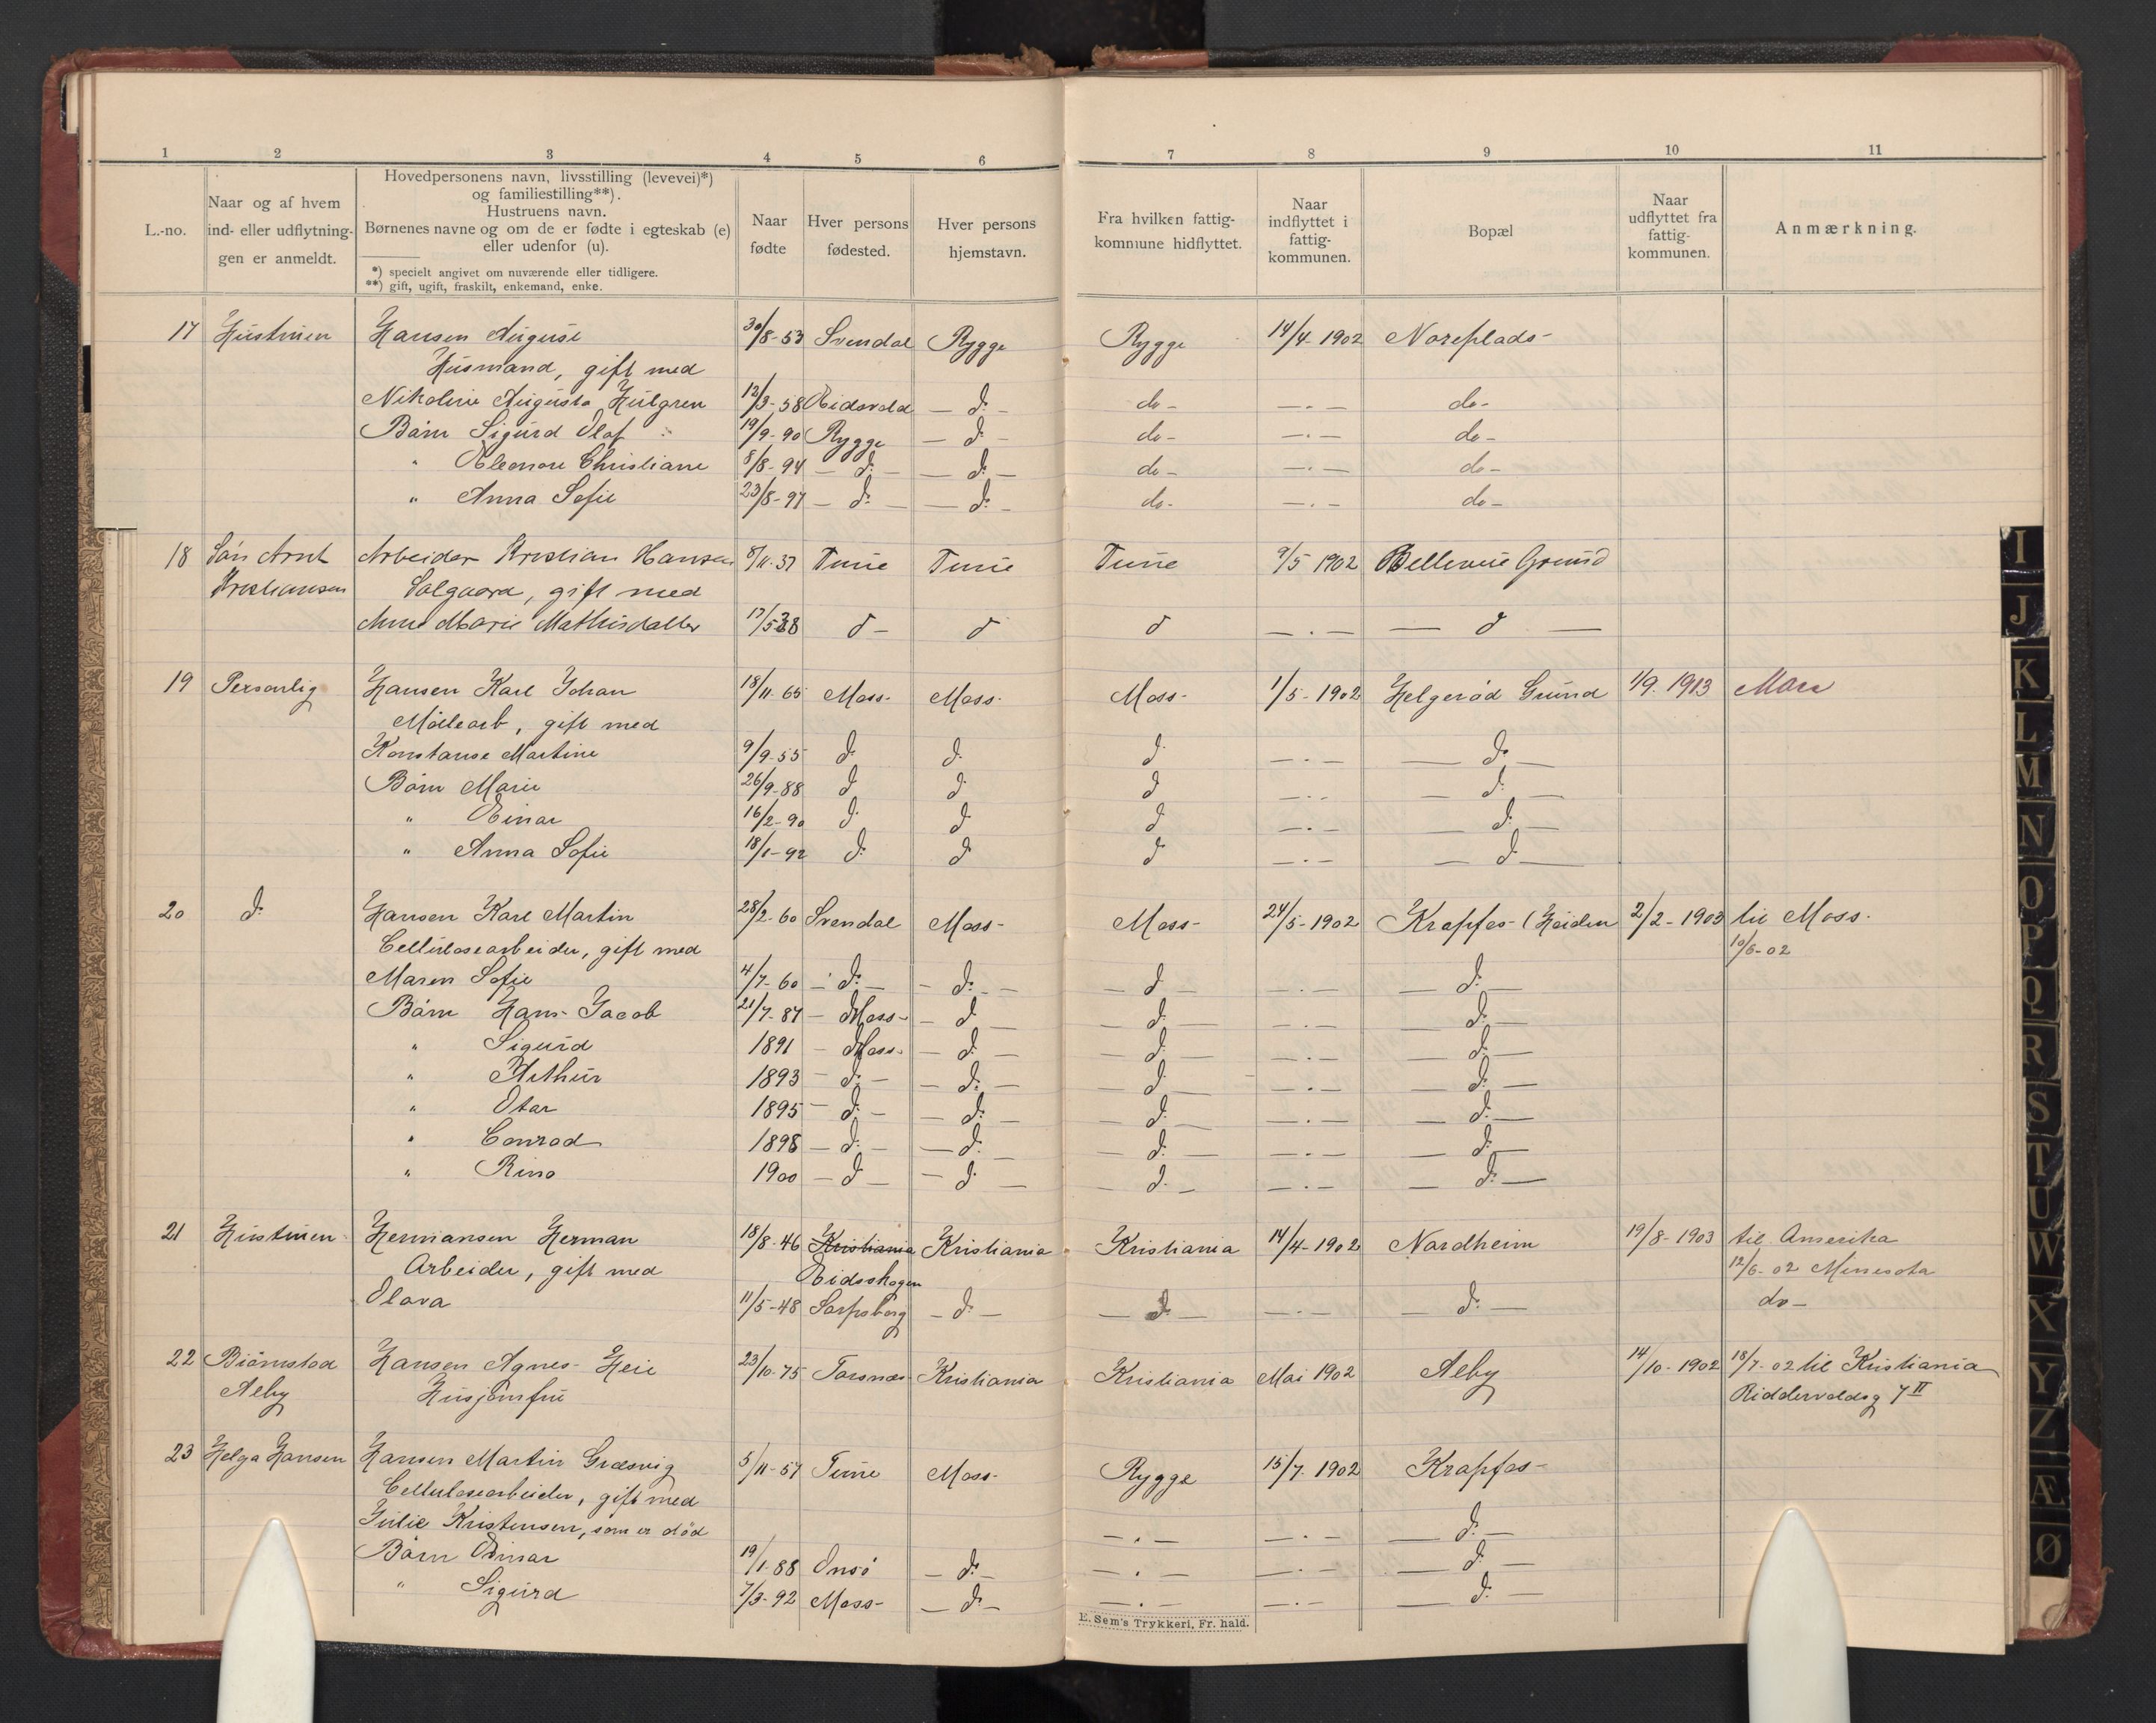 1 2 3 4 5 6 7 8 9 10 11
L.-no.
Naar og af hvem ind- eller udflytningen er anmeldt.
Hovedpersonens navn, livsstilling (levevei)*)
og familiestilling**).
Hustruens navn.
Børnenes navne og om de er fødte i egteskab (e)
eller udenfor (u).
*) specielt angivet om nuværende eller tidligere.
**) gift, ugift, fraskilt, enkemand, enke.
Naar fødte
Hver persons fødested.
Hver persons hjemstavn.
Fra hvilken fattigkommune hidflyttet.
Naar indflyttet i fattigkommunen.
Bopæl
Naar udflyttet fra fattigkommunen.
Anmærkning.
17 Hustruen Hansen August 30/8-53 Svendal Rygge Rygge 14/4-1902 Noreplads-
Husmand, gift med
Nikoline Augusta Hulgren 12/3-58 Eidsvold - d: - do- -.- do-
Børn Sigurd Olaf 19/9-90 Rygge - d: - do- -.- do-
" Eleonore Christiane 8/8-94 - d: - - d: - do- -.- do-
" Anna Sofie 23/8-97 - d: - - d: - do- -.- do-
18 Søn Arnt Arbeider Kristian Hansen 8/11-37 Tune Tune Tune 9/5 1902 Bellevue Grund
Kristiansen Solgaard, gift med
Anne Marie Mathisdatter 17/5 38 d - d d -.- - d -
19 Personlig Hansen Karl Johan 18/11-65 Moss- Moss- Moss- 1/5-1902 Helgerød Grund 1/9. 1913 Moss
Møllearb, gift med
Konstanse Martine 9/9-55 d: d: d: -.- - d: -
Børn Marie 26/9-88 d: d: d -.- - d: -
" Einar 16/2-90 d: d d -.- - d: -
" Anna Sofie 18/1-92 d: d d -.- - d: -
20 d: Hansen Karl Martin 28/2-60 Svendal Moss- Moss- 24/5-1902 Krapfos- (Heiden 2/2-1903 til Moss.
Cellulosearbeider, gift med 10/6-02
Maren Sofie 4/7-60 - d: - - d: - - d - -.- - d: -
Børn Hans Jacob 21/7-87 - Moss- - d - - d: - -.- - d: -
" Sigurd 1891 - Moss- - d - - d: - -.- - d: -
" Arthur 1893 - d: - - d: - - d: - -.- - d: -
" Otar 1895 - d: - - d: - - d: - -.- - d: -
" Conrad 1898 - d: - - d: - - d: - -.- - d: -
" Rino 1900 - d - - d: - - d: - -.- - d: -
21 Hustruen Hermansen Herman 18/8-46 Kristiania Kristiania Kristiania 14/4-1902 Nordheim 19/8-1903 til Amerika
Arbeider, gift med Eidsskogen 12/6-02 Minesota
Olava 11/5-48 Sarpsborg - d: - - d: - -.- - d: - do-
22 Bjørnstad Hansen Agnes 23/10-75 Torsnæs Kristiania Kristiania Mai 1902 Alby 14/10-1902 18/7-02 til Kristiania
Alby Husjomfru Riddervoldsg 7 II
23 Helga Hansen Hansen Martin Græsvig 5/11-57 Tune Moss- Rygge 15/7-1902 Krapfos-
Cellulosearbeider, gift med
Julie Kristensen, som er död -.- -.- - d: -
Børn Einar 19/1-88 Onsö - d: - -.- -.- - d: -
" Sigurd 7/3-92 Moss- - d: - -.- -.- - d: -
E. Sem's Trykkeri, Fr. hald.
I
J
K
L
M
N
O
P
Q
R
S
T
U
W
X
Y
Z
Æ
Ø